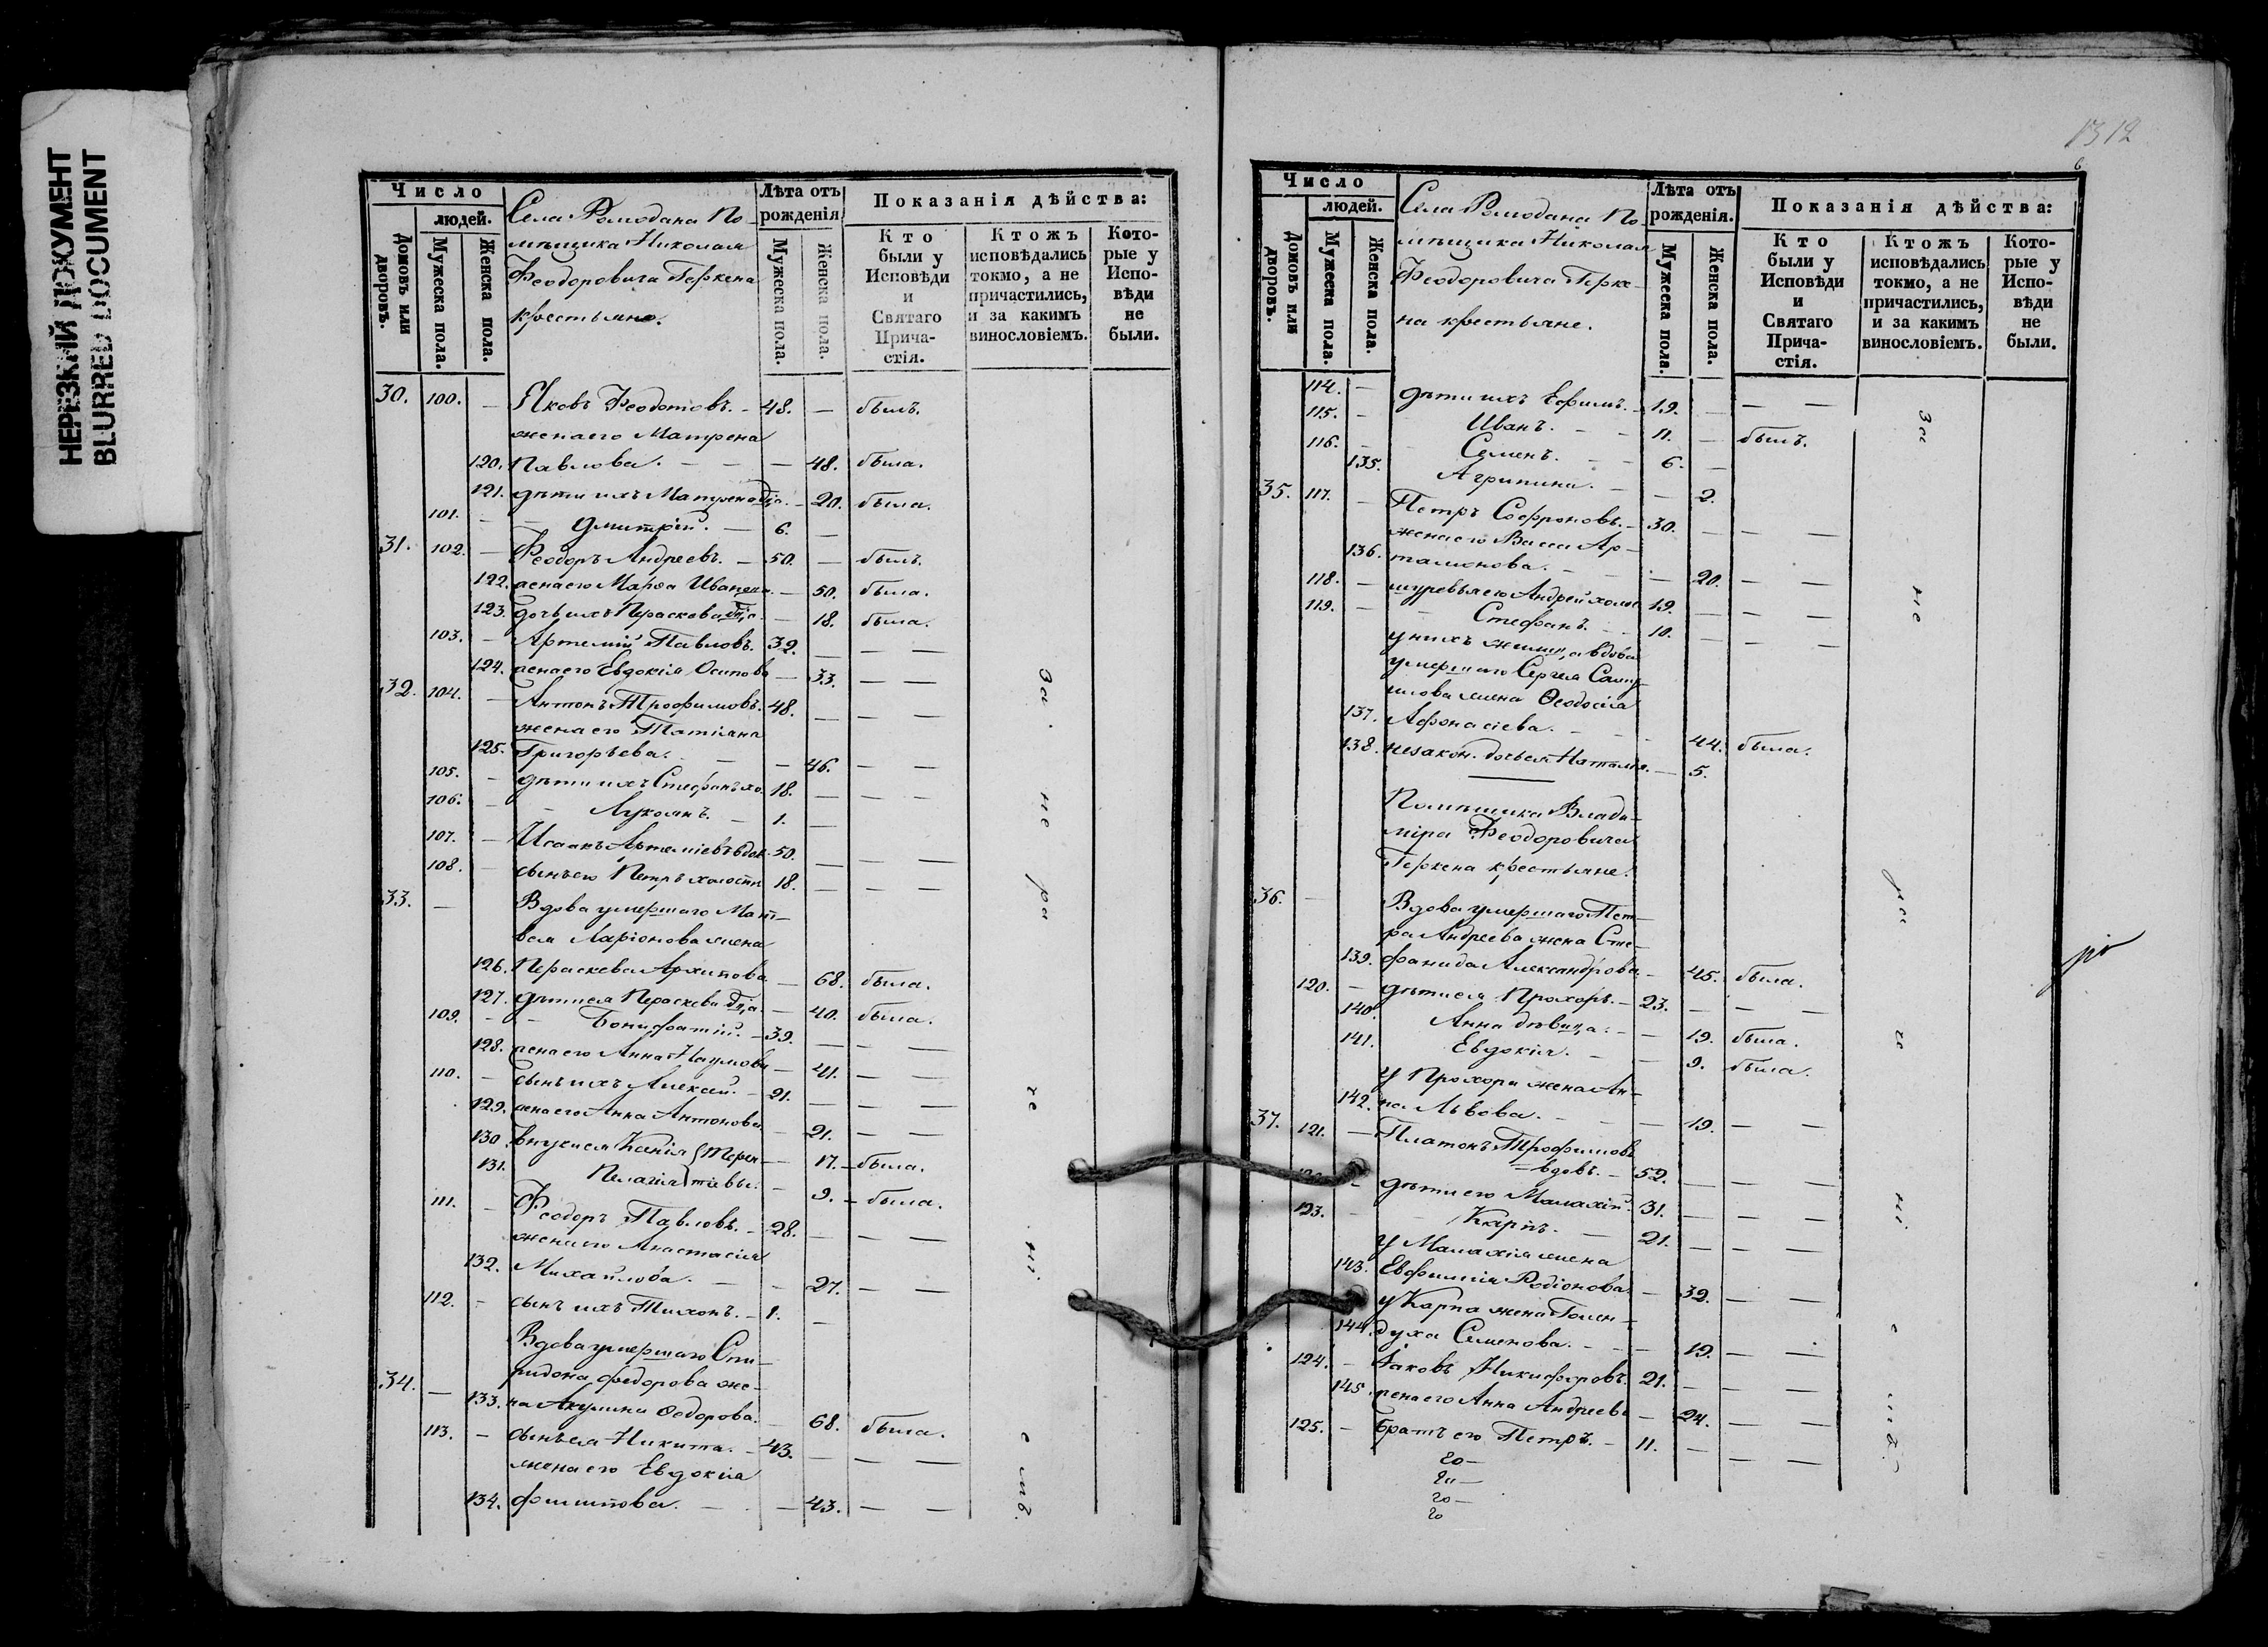 НЕРЕЗКИЙ ДОКУМЕНТ
BLURRED DOCUMENT
Число
людей.
Домовъ или дворовъ.
Мужеска пола.
Женска пола.
Села Ромодана По-
мѣщика Николая
Феодоровича Геркена
крестьяне.
Лѣта отъ
рожденія
Мужеска пола.
Женска пола.
Показанія дѣйства:
Кто были у Исповѣди и Святаго Прича-стія.
Ктожъ исповѣдались токмо, а не причастились, и за какимъ винословіемъ.
Кото-рые у Испо-вѣди не были.
30. 100. — Яковъ Феодотовъ. — 48. — былъ.
жена его Матрена
120. Павлова. — — — 48. была.
121. дѣти ихъ Матрена дца. — 20. была.
101. — — Дмитрій. — 6. —
31. 102. — Феодоръ Андреевъ. — 50. — былъ.
122. жена его Марѳа Иванова. — 50. была.
123. дочь ихъ Параскева дца. — 18. была.
103. — Артемій Павловъ. 32. — — —
124. жена его Евдокія Осипова — 33. — —
32. 104. — Антонъ Трофимовъ. 48. — — —
жена его Татіяна
125. Григорьева. — — 46. — —
105. — дѣти ихъ Стефанъ хо. 18. — — —
106. — — Лукоянъ. — 1. —
107. — Исаакъ Артеміевъ вдов. 50. — — —
108. — сынъ его Петръ холостъ 18. — — —
33. — Вдова умершаго Мат-
вея Ларіонова жена
126. Параскева Архипова — 68. была.
127. дѣти ея Параскева дца. — 40. была.
109. — — Бонифатій. — 39. — — —
128. жена его Анна Наумова — 41. — —
110. — сынъ ихъ Алексѣй. — 21. — — —
129. жена его Анна Антонова. — 21. — —
130. внуки ея Ксенія Терен- — 17. — была.
131. Пелагія тіевы. — 9. — была.
111. — Феодоръ Павловъ. — 28. — — —
жена его Анастасія
132. Михайлова. — — 27. — —
112. — сынъ ихъ Тихонъ. — 1. —
Вдова умершаго Спи-
ридона Федорова же-
34. — 133. на Акулина Ѳедорова. — 68. была.
113. — сынъ ея Никита. — 43. — — —
жена его Евдокія
134. Филипова. — — 43. — —
за не ра че ні е мъ.
1312
6
Число
людей.
Домовъ или дворовъ.
Мужеска пола.
Женска пола.
Села Ромодана По-
мѣщика Николая
Феодоровича Герке-
на крестьяне.
Лѣта отъ
рожденія.
Мужеска пола.
Женска пола.
Показанія дѣйства:
Кто были у Исповѣди и Святаго Прича-стія.
Ктожъ исповѣдались токмо, а не причастились, и за какимъ винословіемъ.
Кото-рые у Испо-вѣди не были.
114. — дѣти ихъ Ефимъ. — 19. — — —
115. — Иванъ. — — 11. — былъ.
116. — Семенъ. — — 6. —
135. Агрипина. — — 2.
35. 117. — Петръ Софроновъ. — 30. — — —
жена его Васса Ар-
136. тамонова. — — — 20. — —
118. — шуревья его Андрей холос 19. — — —
119. — — Стефанъ. — 10. — — —
у нихъ жилица вдова
умершаго Сергея Саму-
илова жена Ѳеодосія
137. Афонасіева. — — — 44. была.
138. незакон. дочь ея Наталья. — 5.
Помѣщика Влади-
міра Феодоровича
Геркена крестьяне.
36. — Вдова умершаго Пет-
ра Андреева жена Сте-
139. фанида Александрова — 45. была.
120. — дѣти ея Прохоръ. — 23. — — —
140. Анна дѣвица. — — 19. была.
141. Евдокія. — — 9. была.
у Прохора жена Ан-
142. на Львова. — — — 19. — —
37. 121. — Платонъ Трофимовъ
вдовъ. — 52. — — —
— дѣти его Малахій. 31. — — —
123. — — Карпъ. — 21. — — —
у Малахія жена
143. Евфимія Родіонова. — 32. — —
у Карпа жена Голен-
144. духа Семенова. — — 19. — —
124. — Іаковъ Никифоровъ. 21. — — —
145. жена его Анна Андреева — 24. — —
125. — братъ его Петръ. — 11. — — —
за не ра че ні е мъ.
20 —
20 —
20